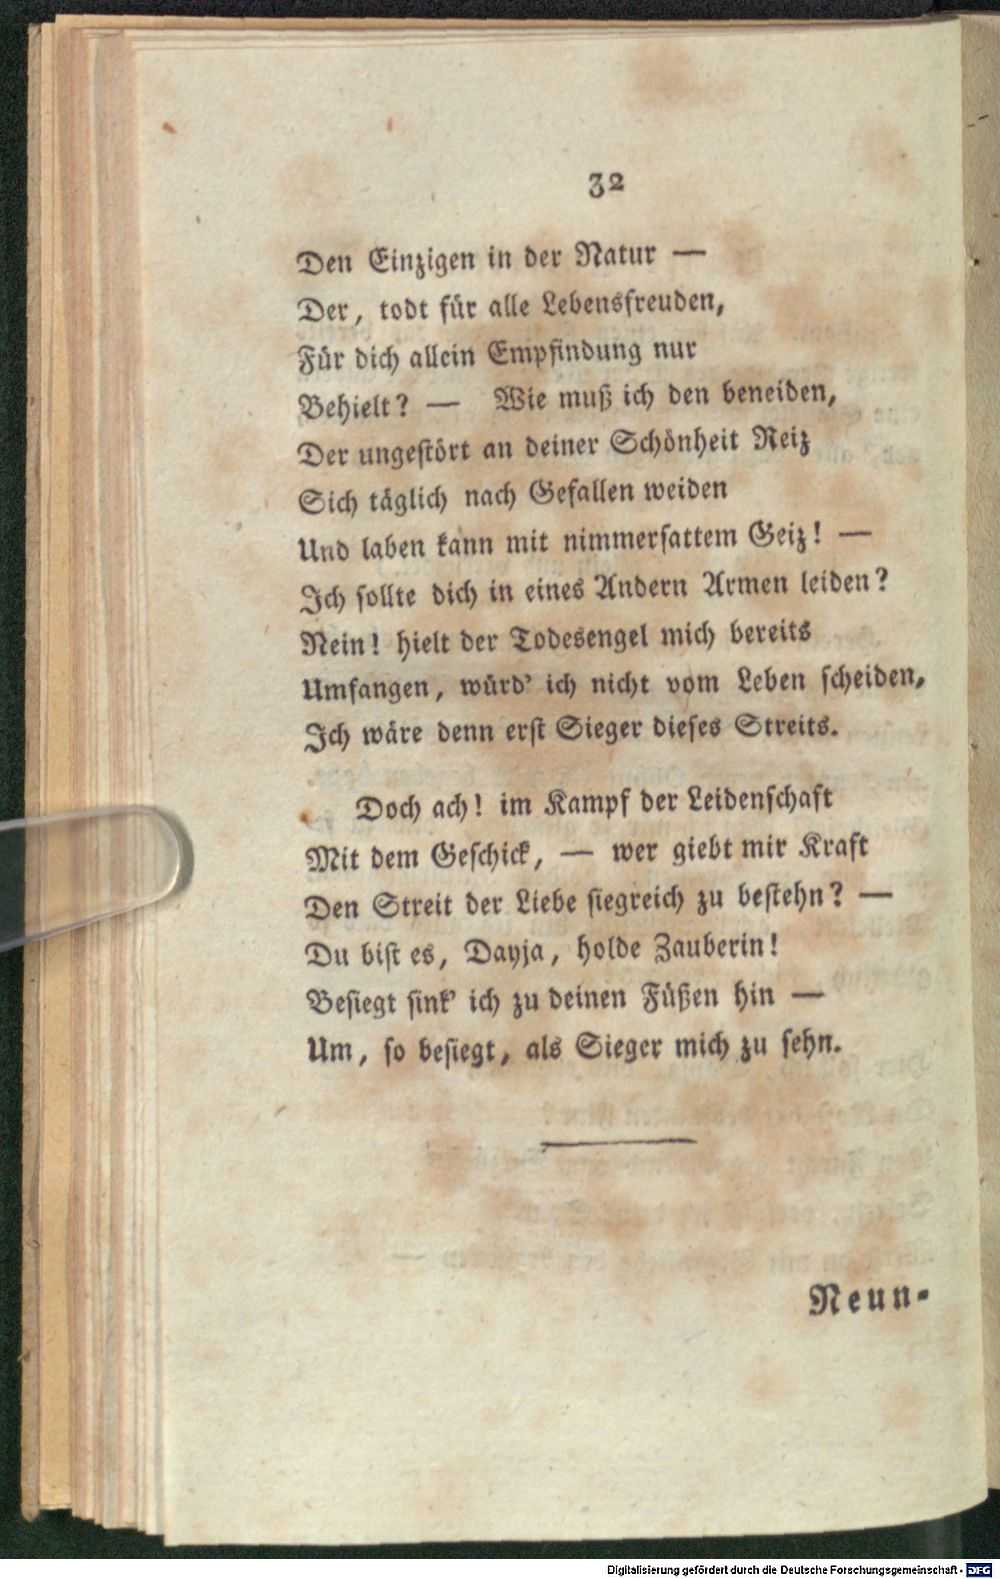 32
Den Einzigen in der Natur —
Der, todt für alle Lebensfreuden,
Für dich allein Empfindung nur
Behielt? — Wie muß ich den beneiden,
Der ungestört an deiner Schönheit Reiz
Sich täglich nach Gefallen weiden
Und laben kann mit nimmersattem Geiz! —
Ich sollte dich in eines Andern Armen leiden?
Nein! hielt der Todesengel mich bereits
Umfangen, würd' ich nicht vom Leben scheiden,
Ich wäre denn erst Sieger dieses Streits.
Doch ach! im Kampf der Leidenschaft
Mit dem Geschick, — wer giebt mir Kraft
Den Streit der Liebe siegreich zu bestehn? —
Du bist es, Dayja, holde Zauberin!
Besiegt sink' ich zu deinen Füßen hin —
Um, so besiegt, als Sieger mich zu sehn.
Neun-
Digitalisierung gefördert durch die Deutsche Forschungsgemeinschaft - DFG